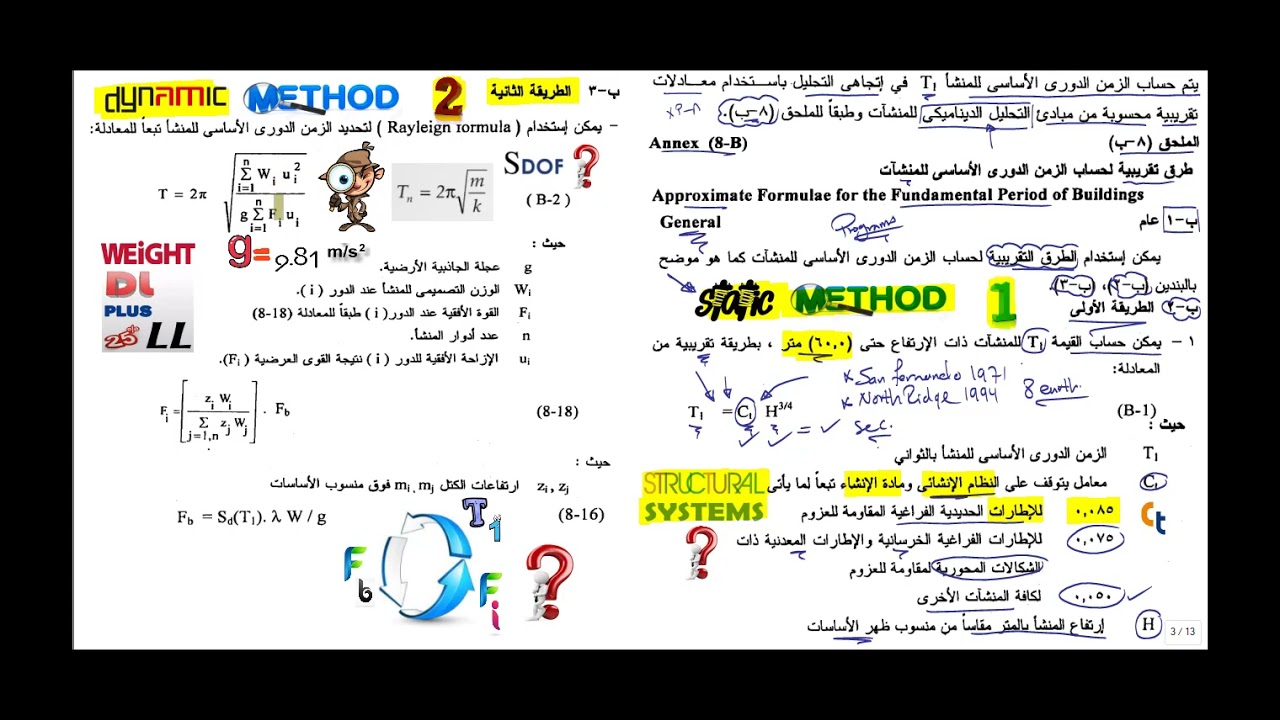 يتم حساب الزمن الدورى الأساسى للمنشأ T1 في إتجاهى التحليل باستخدام معادلات
تقريبية محسوبة من مبادئ التحليل الديناميكى للمنشآت وطبقاً للملحق (٨-ب).
الملحق (٨-ب)
Annex (8-B)
طرق تقريبية لحساب الزمن الدورى الأساسى للمنشآت
Approximate Formulae for the Fundamental Period of Buildings
ب-١ عام
General
Programs
يمكن إستخدام الطرق التقريبية لحساب الزمن الدورى الأساسى للمنشآت كما هو موضح
بالبندين (ب-٢)، (ب-٣).
STATIC METHOD 1
ب-٢ الطريقة الأولى
١ - يمكن حساب القيمة T1 للمنشآت ذات الإرتفاع حتى (٦٠,٠) متر ، بطريقة تقريبية من
المعادلة:
* San fernando 1971
* North Ridge 1994
8 earth.
T1 = C1 H3/4
(B-1)
= ✓ sec.
حيث :
T1 الزمن الدورى الأساسى للمنشأ بالثوانى
C1 معامل يتوقف على النظام الإنشائى ومادة الإنشاء تبعاً لما يأتى
STRUCTURAL SYSTEMS
Ct
٠,٠٨٥ للإطارات الحديدية الفراغية المقاومة للعزوم
٠,٠٧٥ للإطارات الفراغية الخرسانية والإطارات المعدنية ذات
الشكالات المحورية لمقاومة للعزوم
٠,٠٥٠ لكافة المنشآت الأخرى
H إرتفاع المنشأ بالمتر مقاساً من منسوب ظهر الأساسات
3 / 13
ب-٣ الطريقة الثانية
DYNAMIC METHOD 2
- يمكن إستخدام ( Rayleign formula ) لتحديد الزمن الدورى الأساسى للمنشأ تبعاً للمعادلة:
T = 2π √( Σ i=1 n Wi ui2 / g Σ i=1 n Fi ui )
Tn = 2π √(m/k)
SDOF ?
( B-2 )
حيث :
g= 9.81 m/s²
g عجلة الجاذبية الأرضية.
Wi الوزن التصميمى للمنشأ عند الدور ( i ).
Fi القوة الأفقية عند الدور( i ) طبقاً للمعادلة (8-18)
n عدد أدوار المنشأ.
ui الإزاحة الأفقية للدور ( i ) نتيجة القوى العرضية (Fi).
WEiGHT
DL
PLUS
LL
Fi = [ zi Wi / Σ j=1,n zj Wj ] . Fb
(8-18)
حيث :
zi, zj ارتفاعات الكتل mi, mj فوق منسوب الأساسات
Fb = Sd(T1). λ W / g
(8-16)
T1
Fb
Fi
?